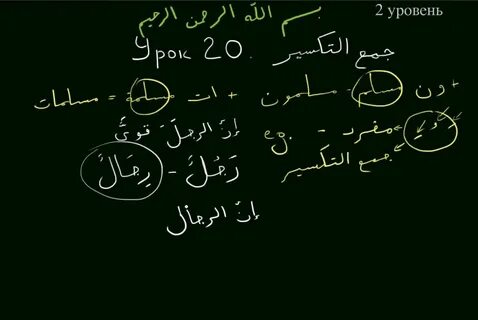 2 уровень
بسم الله الرحمن الرحيم
Урок 20. جمع التكسير
مسلم - مسلمون + ون
مسلمة + ات = مسلمات
مفرد - eg.
إنَّ الرجلَ قويٌّ
جمع التكسير
رَجُلٌ - رِجَالٌ
إنَّ الرجال